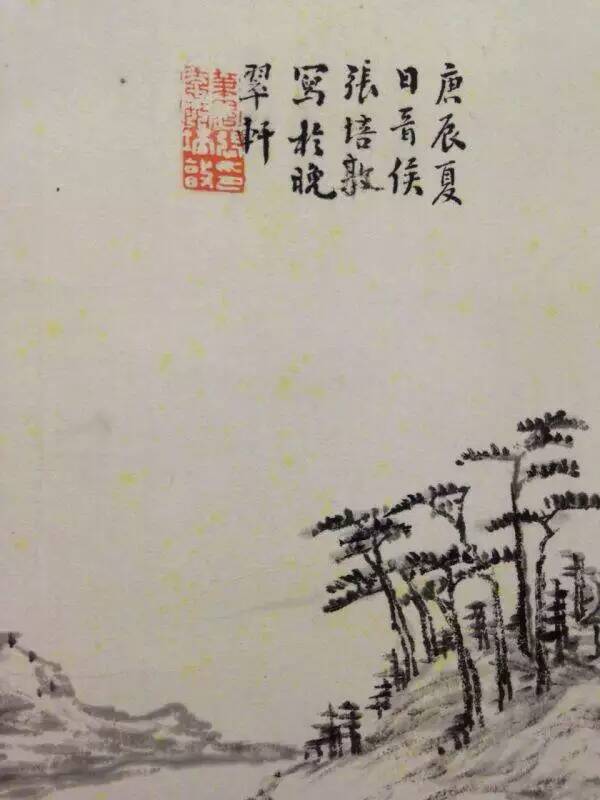 庚辰夏
日晉侯
張培敦
寫於晚
翠軒